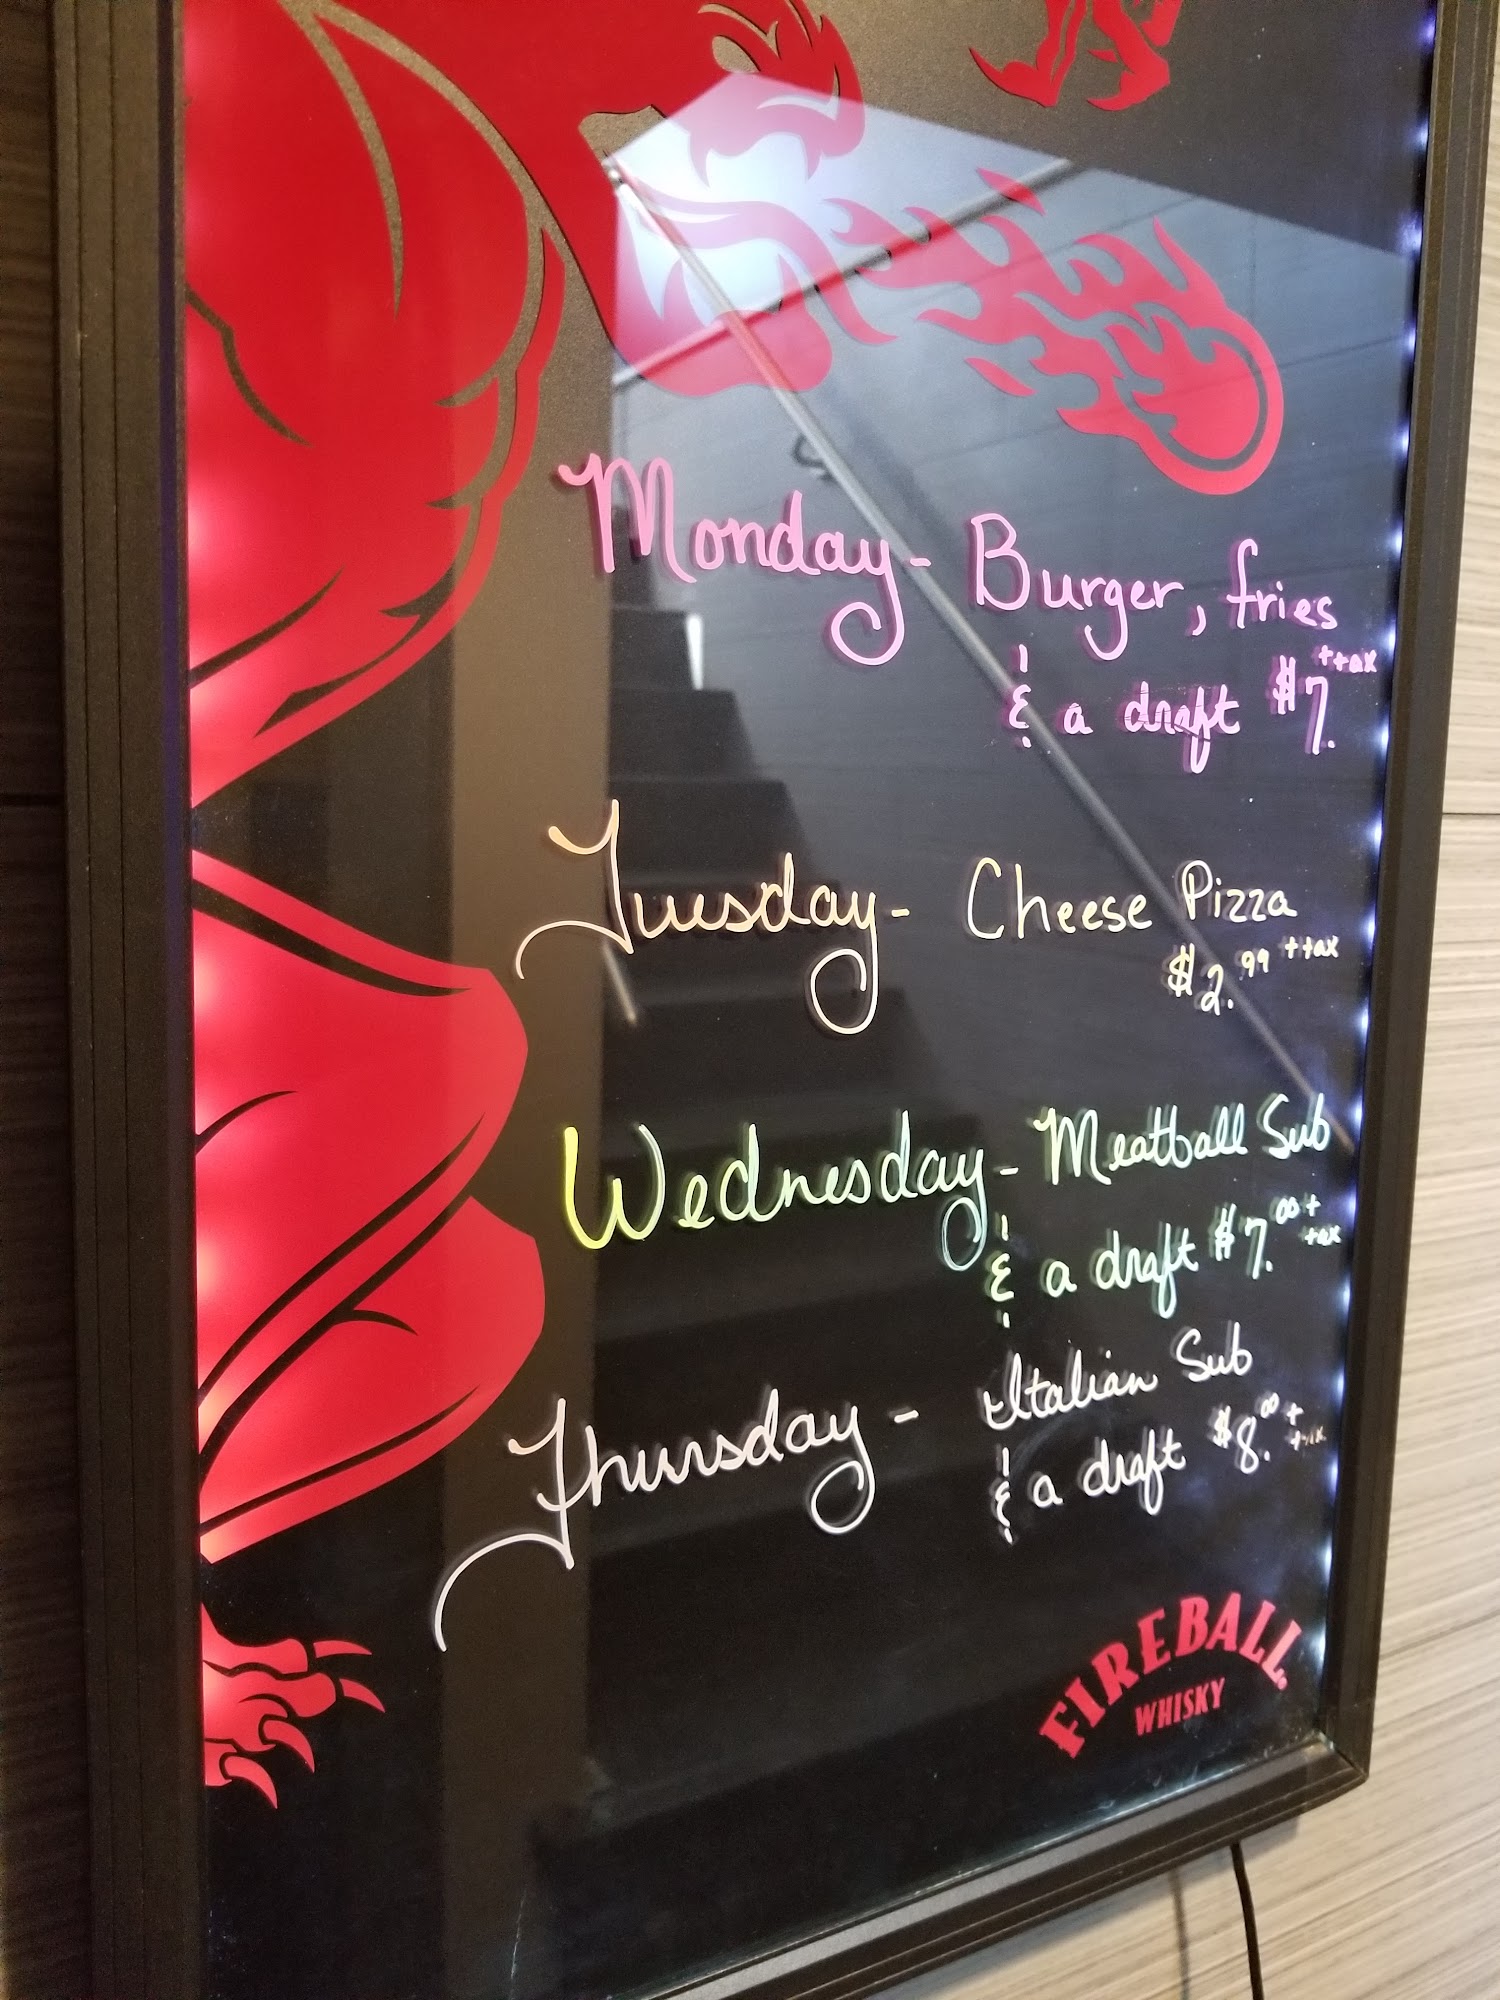 Monday - Burger, fries
& a draft $7. + tax
Tuesday - Cheese Pizza
$2.99 + tax
Wednesday - Meatball Sub
& a draft $7.00 + tax
Thursday - Italian Sub
& a draft $8.00 + tax
FIREBALL
WHISKY